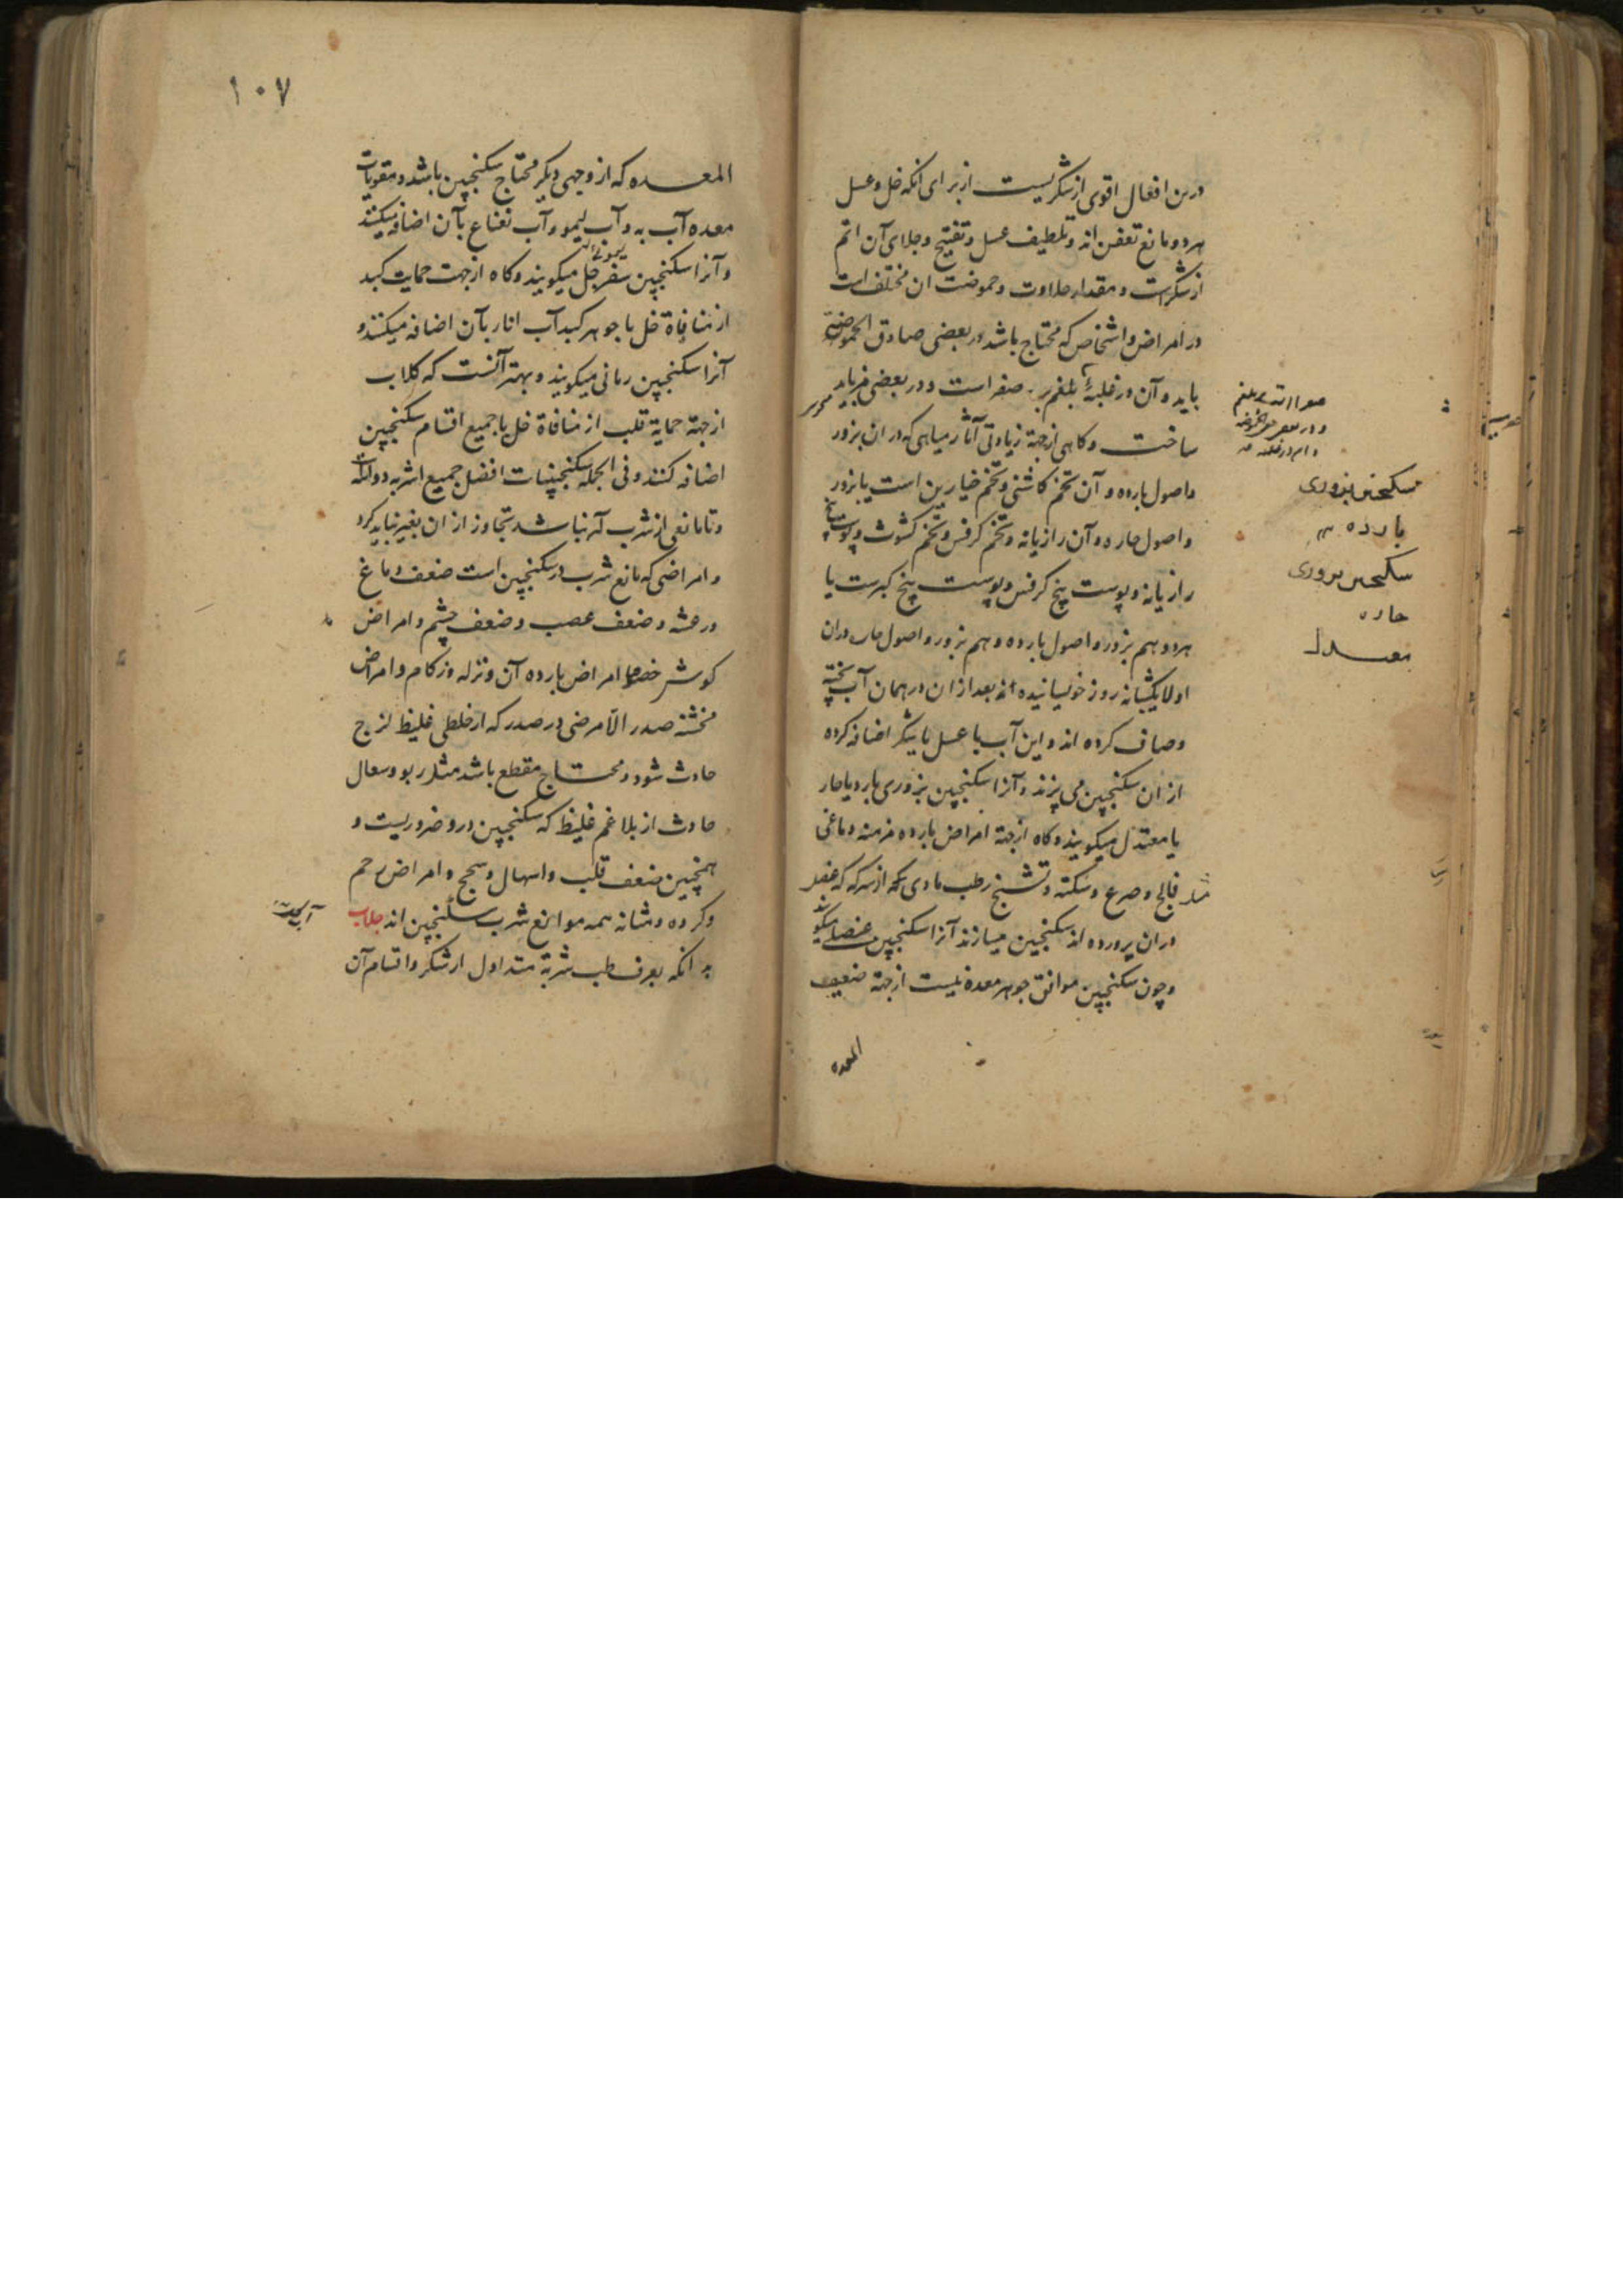 درین افعال اقوی از شکریست از برای آنکه خل و عسل
هر دو مانع تعفن اند و تلطیف عسل و تفتیح و جلای آن اتم
از شکر است و مقدار حلاوت و حموضت آن مختلف است
در امراض و اشخاص که محتاج باشد در بعضی صادق الحموضة
باید و آن در غلبهٔ بلغم بر صفر است و در بعضی مز باید
ساخت و کاهی از جهة زیادتی آثار میاهی که در ان بزور
و اصول بارده و آن تخم کاشنی و تخم خیارین است یا بزور
و اصول حاره و آن رازیانه و تخم کرفس و تخم کشوث و پوست بیخ
رازیانه و پوست بیخ کرفس و پوست بیخ کبرست یا
هر دو هم بزور و اصول بارده و هم بزور و اصول حاره در ان
اولا یکشبانه روز خویسانیده اند بعد از ان در همان آب پخته
و صاف کرده اند و این آب با عسل یا شکر اضافه کرده
از ان سکنجبین می پزند و آنرا سکنجبین بزوری بارد یا حار
یا معتدل میکویند و کاه از جهة امراض بارده مزمنه دماغی
مثل فالج و صرع و سکته و تشنج رطب مادی که از سرکه که عنصل
در ان پرورده اند سکنجبین میسازند آنرا سکنجبین عنصلی میکویند
و چون سکنجبین موافق جوهر معده نیست از جهة ضعیف
المعده
سکنجبین بزوری
بارده
سکنجبین بزوری
حاره
معتدل
۱۰۷
المعده که از وجهی دیکر محتاج سکنجبین باشد و مقویات
معده آب به و آب لیمو و آب نعناع بآن اضافه میکنند
و آنرا سکنجبین سفرجلی میکویند و کاه از جهت حمایت کبد
از منافاة خل با جوهر کبد آب انار بآن اضافه میکنند و
آنرا سکنجبین رمانی میکویند و بهتر آنست که کلاب
از جهة حمایة قلب از منافاة خل با جمیع اقسام سکنجبین
اضافه کنند و فی الجمله سکنجبینات افضل جمیع اشربه دوائیه است
و تا مانعی از شرب آن نباشد تجاوز از ان بغیر نباید کرد
و امراضی که مانع شرب سکنجبین است ضعف دماغ
و رعشه و ضعف عصب و ضعف چشم و امراض
کوش خصوصا امراض بارده آن و نزله و زکام و امراض
مخشنه صدر الا مرضی در صدر که از خلطی غلیظ لزج
حادث شود و محتاج مقطع باشد مثل ربو و سعال
حادث از بلاغم غلیظ که سکنجبین درو ضروریست و
همچنین ضعف قلب و اسهال و سحج و امراض رحم
و کرده و مثانه همه موانع شرب سکنجبین اند جلاب
بدانکه بعرف طب شربة متداول از شکر و اقسام آن